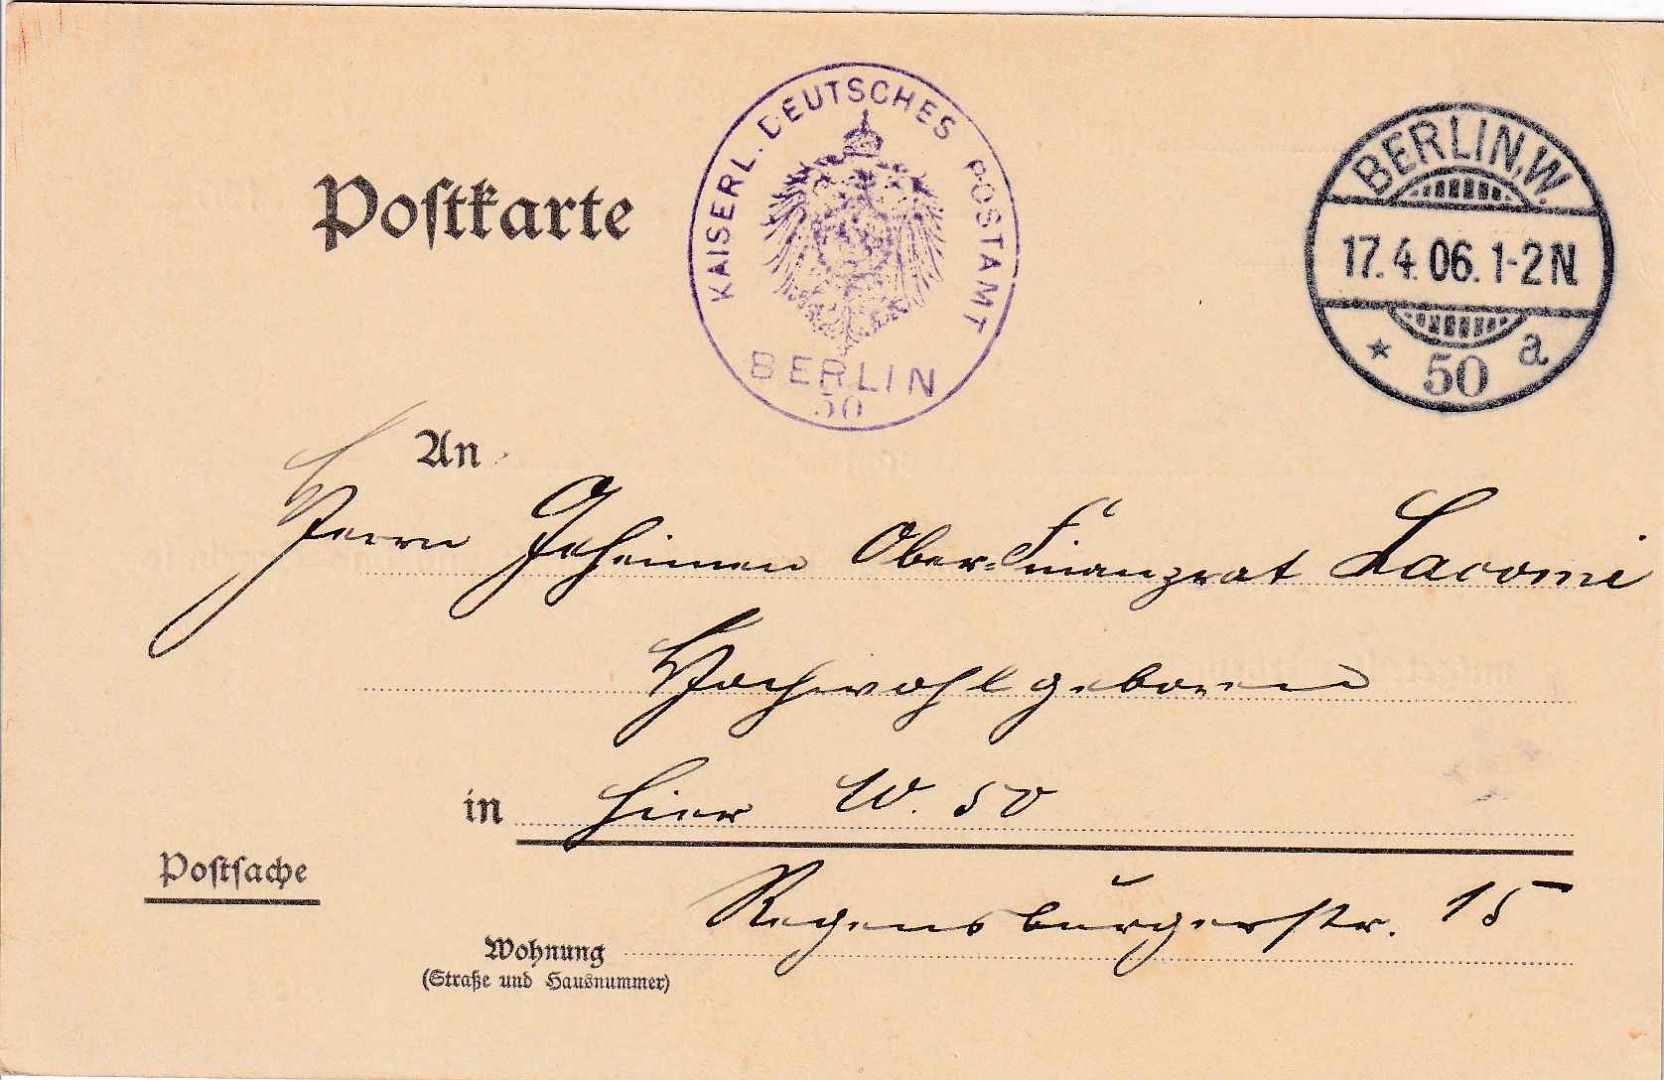 Postkarte
KAISERL. DEUTSCHES POSTAMT
BERLIN
50
BERLIN, W.
17.4.06. 1-2N
* 50 a
An
Herrn Geheimen Ober-Finanzrat Lacomi
Hochwohlgeboren
in hier W. 50
Postsache
Regensburgerstr. 15
Wohnung
(Straße und Hausnummer)